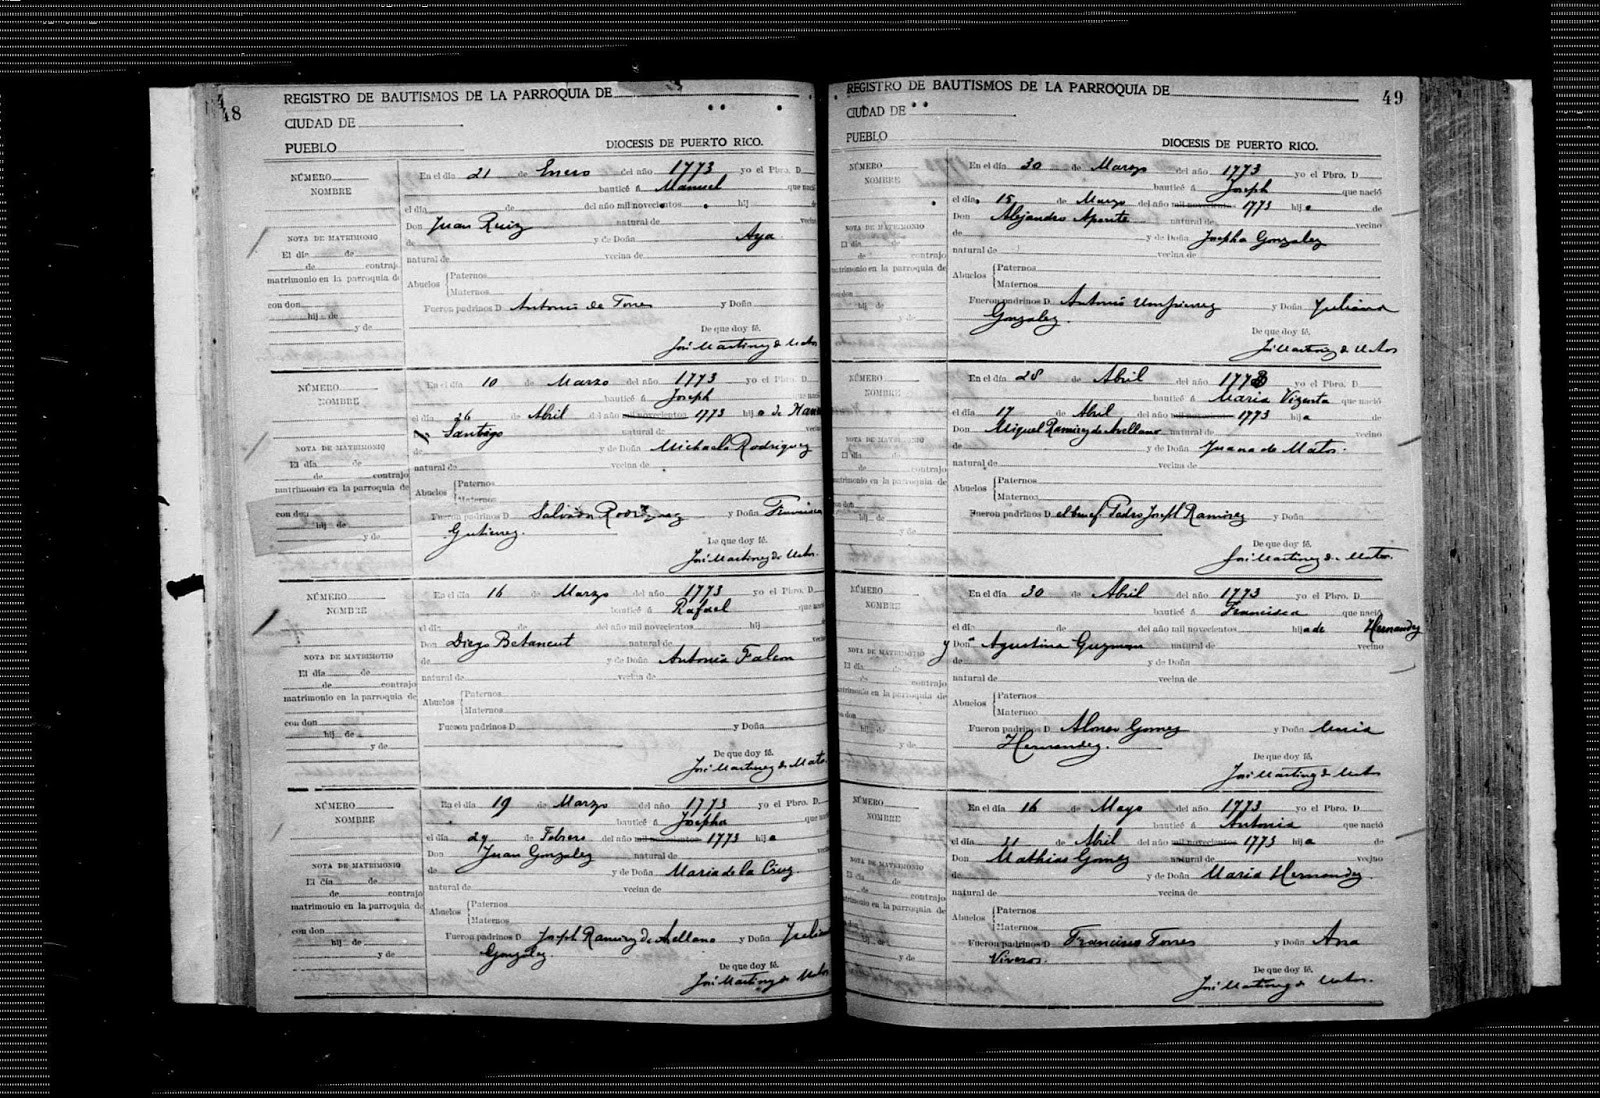 48
REGISTRO DE BAUTISMOS DE LA PARROQUIA DE
CIUDAD DE
PUEBLO DIOCESIS DE PUERTO RICO.
NÚMERO
NOMBRE
NOTA DE MATRIMONIO
El día de
de contrajo
matrimonio en la parroquia de
con don
hij de
y de
En el día 21 de Enero del año 1773 yo el Pbro. D
bauticé á Manuel que nació
el día de del año mil novecientos hij de
Don Juan Ruiz natural de vecino
de y de Doña Aya
natural de vecina de
Abuelos Paternos
Maternos
Fueron padrinos D Antonio de Torres y Doña
De que doy fé.
José Martinez de Matos
NÚMERO
NOMBRE
NOTA DE MATRIMONIO
El día de
de contrajo
matrimonio en la parroquia de
con don
hij de
y de
En el día 10 de Marzo del año 1773 yo el Pbro. D
bauticé á Joseph que nació
el día 26 de Abril del año mil novecientos 1773 hijo de
Santiago natural de vecino
de y de Doña Michaela Rodriguez
natural de vecina de
Abuelos Paternos
Maternos
Fueron padrinos D Salvador Rodriguez y Doña Francisca
Gutierrez.
De que doy fé.
José Martinez de Matos.
NÚMERO
NOMBRE
NOTA DE MATRIMOTIO
El día de
de contrajo
matrimonio en la parroquia de
con don
hij de
y de
En el día 16 de Marzo del año 1773 yo el Pbro. D
bauticé á Rafael que nació
el día de del año mil novecientos hij de
Don Diego Betancut natural de vecino
de y de Doña Antonia Falcon
natural de vecina de
Abuelos Paternos
Maternos
Fueron padrinos D y Doña
De que doy fé.
José Martinez de Matos
NÚMERO
NOMBRE
NOTA DE MATRIMONIO
El día de
de contrajo
matrimonio en la parroquia de
con don
hij de
y de
En el día 19 de Marzo del año 1773 yo el Pbro. D
bauticé á Josepha que nació
el día de Febrero del año mil novecientos 1773 hija
Don Juan Gonzalez natural de vecino
de y de Doña Maria de la Cruz.
natural de vecina de
Abuelos Paternos
Maternos
Fueron padrinos D Joseph Ramirez de Arellano y Doña Juliana
Gonzalez
De que doy fé.
José Martinez de Matos
49
REGISTRO DE BAUTISMOS DE LA PARROQUIA DE
CIUDAD DE
PUEBLO DIOCESIS DE PUERTO RICO.
NÚMERO
NOMBRE
NOTA DE MATRIMONIO
El día de
de contrajo
matrimonio en la parroquia de
con don
hij de
y de
En el día 30 de Marzo del año 1773 yo el Pbro. D
bauticé á Joseph que nació
el día 15 de Marzo del año mil novecientos 1773 hijo de
Don Alejandro Aponte natural de vecino
de y de Doña Josepha Gonzalez
natural de vecina de
Abuelos Paternos
Maternos
Fueron padrinos D Antonio Umpierrez y Doña Juliana
Gonzalez.
De que doy fé.
José Martinez de Matos
NÚMERO
NOMBRE
NOTA DE MATRIMONIO
El día de
de contrajo
matrimonio en la parroquia de
con don
hij de
y de
En el día 28 de Abril del año 1773 yo el Pbro. D
bauticé á Maria Vizenta que nació
el día 17 de Abril del año mil novecientos 1773 hija de
Don Miguel Ramirez de Arellano natural de vecino
de y de Doña Juana de Matos.
natural de vecina de
Abuelos Paternos
Maternos
Fueron padrinos D el benef. Pedro Joseph Ramirez y Doña
De que doy fé.
José Martinez de Matos.
NÚMERO
NOMBRE
NOTA DE MATRIMONIO
El día de
de contrajo
matrimonio en la parroquia de
con don
hij de
y de
En el día 30 de Abril del año 1773 yo el Pbro. D
bauticé á Francisca que nació
el día de del año mil novecientos hija de Hernandez
y Donª Agustina Guzman natural de vecino
de y de Doña
natural de vecina de
Abuelos Paternos
Maternos
Fueron padrinos D Alonso Gomez y Doña
Hernandez.
De que doy fé.
José Martinez de Matos
NÚMERO
NOMBRE
NOTA DE MATRIMONIO
El día de
de contrajo
matrimonio en la parroquia de
con don
hij de
y de
En el día 16 de Mayo del año 1773 yo el Pbro. D
bauticé á Antonia que nació
el día de Abril del año mil novecientos 1773 hija de
Don Mathias Gomez natural de vecino
de y de Doña Maria Hernandez.
natural de vecina de
Abuelos Paternos
Maternos
Fueron padrinos D Francisco Torres y Doña Ana
Viveros.
De que doy fé.
José Martinez de Matos.